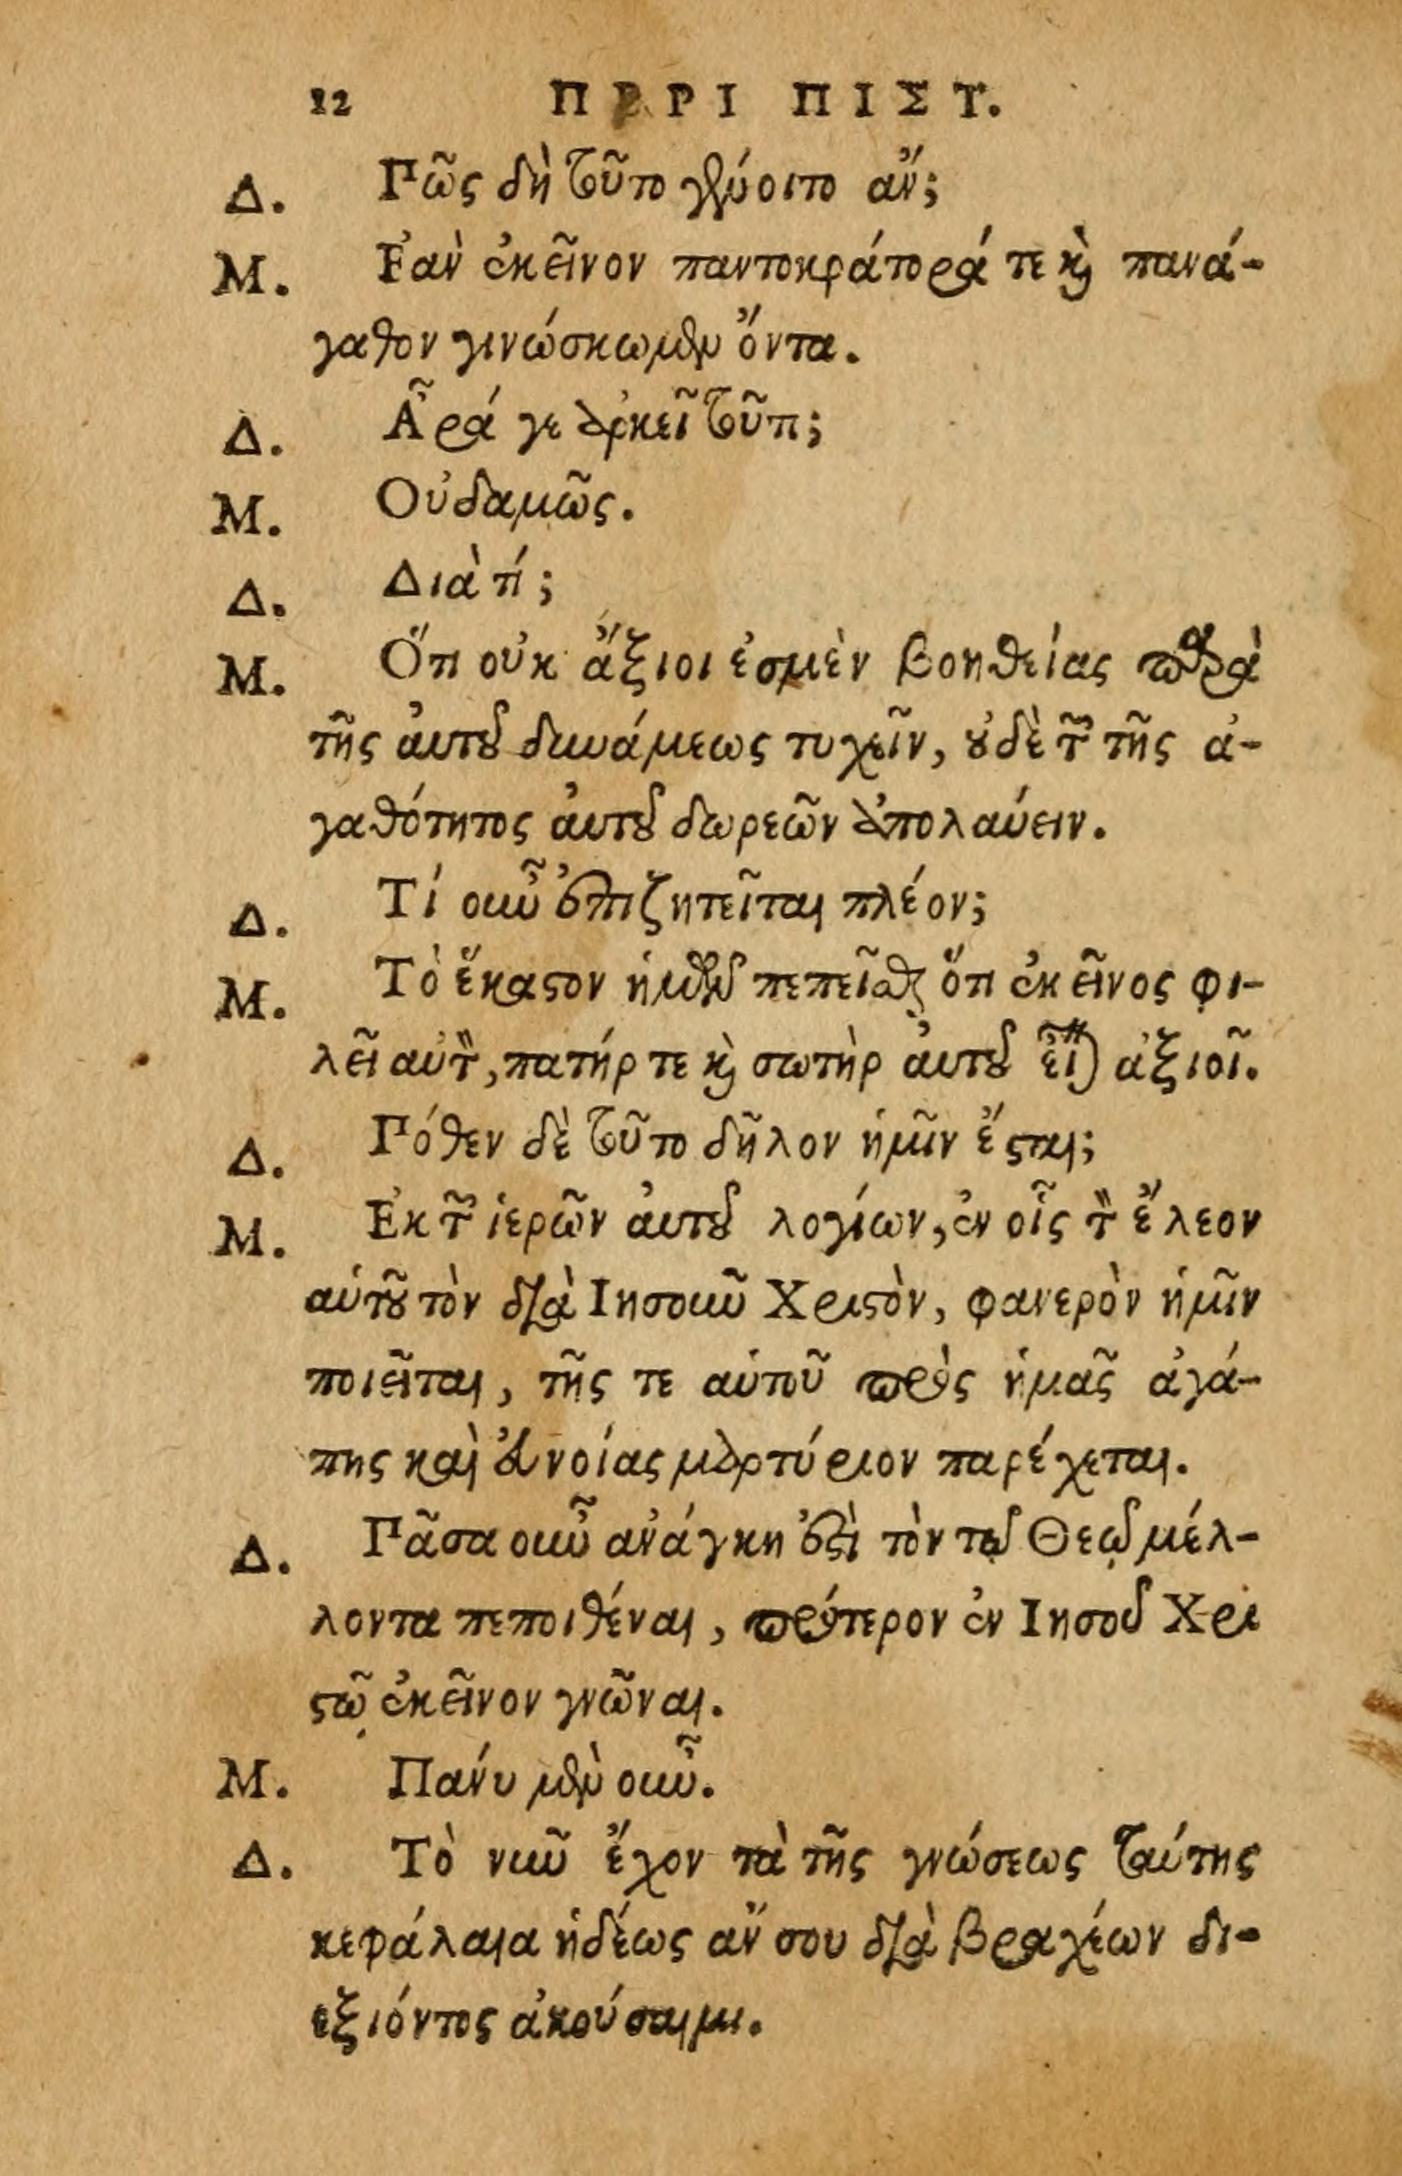 12 ΠΕΡΙ ΠΙΣΤ.
Δ. Πῶς δὴ τοῦτο γένοιτο ἄν;
Μ. Εὰν ἐκεῖνον παντοκράτορά τε καὶ πανά-
γαθον γινώσκωμεν ὄντα.
Δ. Ἆρά γε ἀρκεῖ τοῦτι;
Μ. Οὐδαμῶς.
Δ. Διὰ τί;
Μ. Ὅτι οὐκ ἄξιοι ἐσμὲν βοηθείας παρὰ
τῆς αὐτοῦ δυνάμεως τυχεῖν, οὐδὲ τῶν τῆς ἀ-
γαθότητος αὐτοῦ δωρεῶν ἀπολαύειν.
Δ. Τί οὖν ἐπιζητεῖται πλέον;
Μ. Τὸ ἕκαστον ἡμῶν πεπεῖσθαι ὅτι ἐκεῖνος φι-
λεῖ αὐτὸν, πατήρ τε καὶ σωτὴρ αὐτοῦ εἶναι ἀξιοῖ.
Δ. Πόθεν δὲ τοῦτο δῆλον ἡμῖν ἔσται;
Μ. Εκ τῶν ἱερῶν αὐτοῦ λογίων, ἐν οἷς τὸν ἔλεον
αὑτοῦ τὸν διὰ Ιησοῦν Χριστὸν, φανερὸν ἡμῖν
ποιεῖται, τῆς τε αὑτοῦ πρὸς ἡμᾶς ἀγά-
πης καὶ εὐνοίας μαρτύριον παρέχεται.
Δ. Πᾶσα οὖν ἀνάγκη ἐστὶ τὸν τῷ Θεῷ μέλ-
λοντα πεποιθέναι, πρότερον ἐν Ιησοῦ Χρι
στῷ ἐκεῖνον γνῶναι.
Μ. Πάνυ μὲν οὖν.
Δ. Τὸ νῦν ἔχον τὰ τῆς γνώσεως ταύτης
κεφάλαια ἡδέως ἄν σου διὰ βραχέων δι-
εξιόντος ἀκούσαιμι.